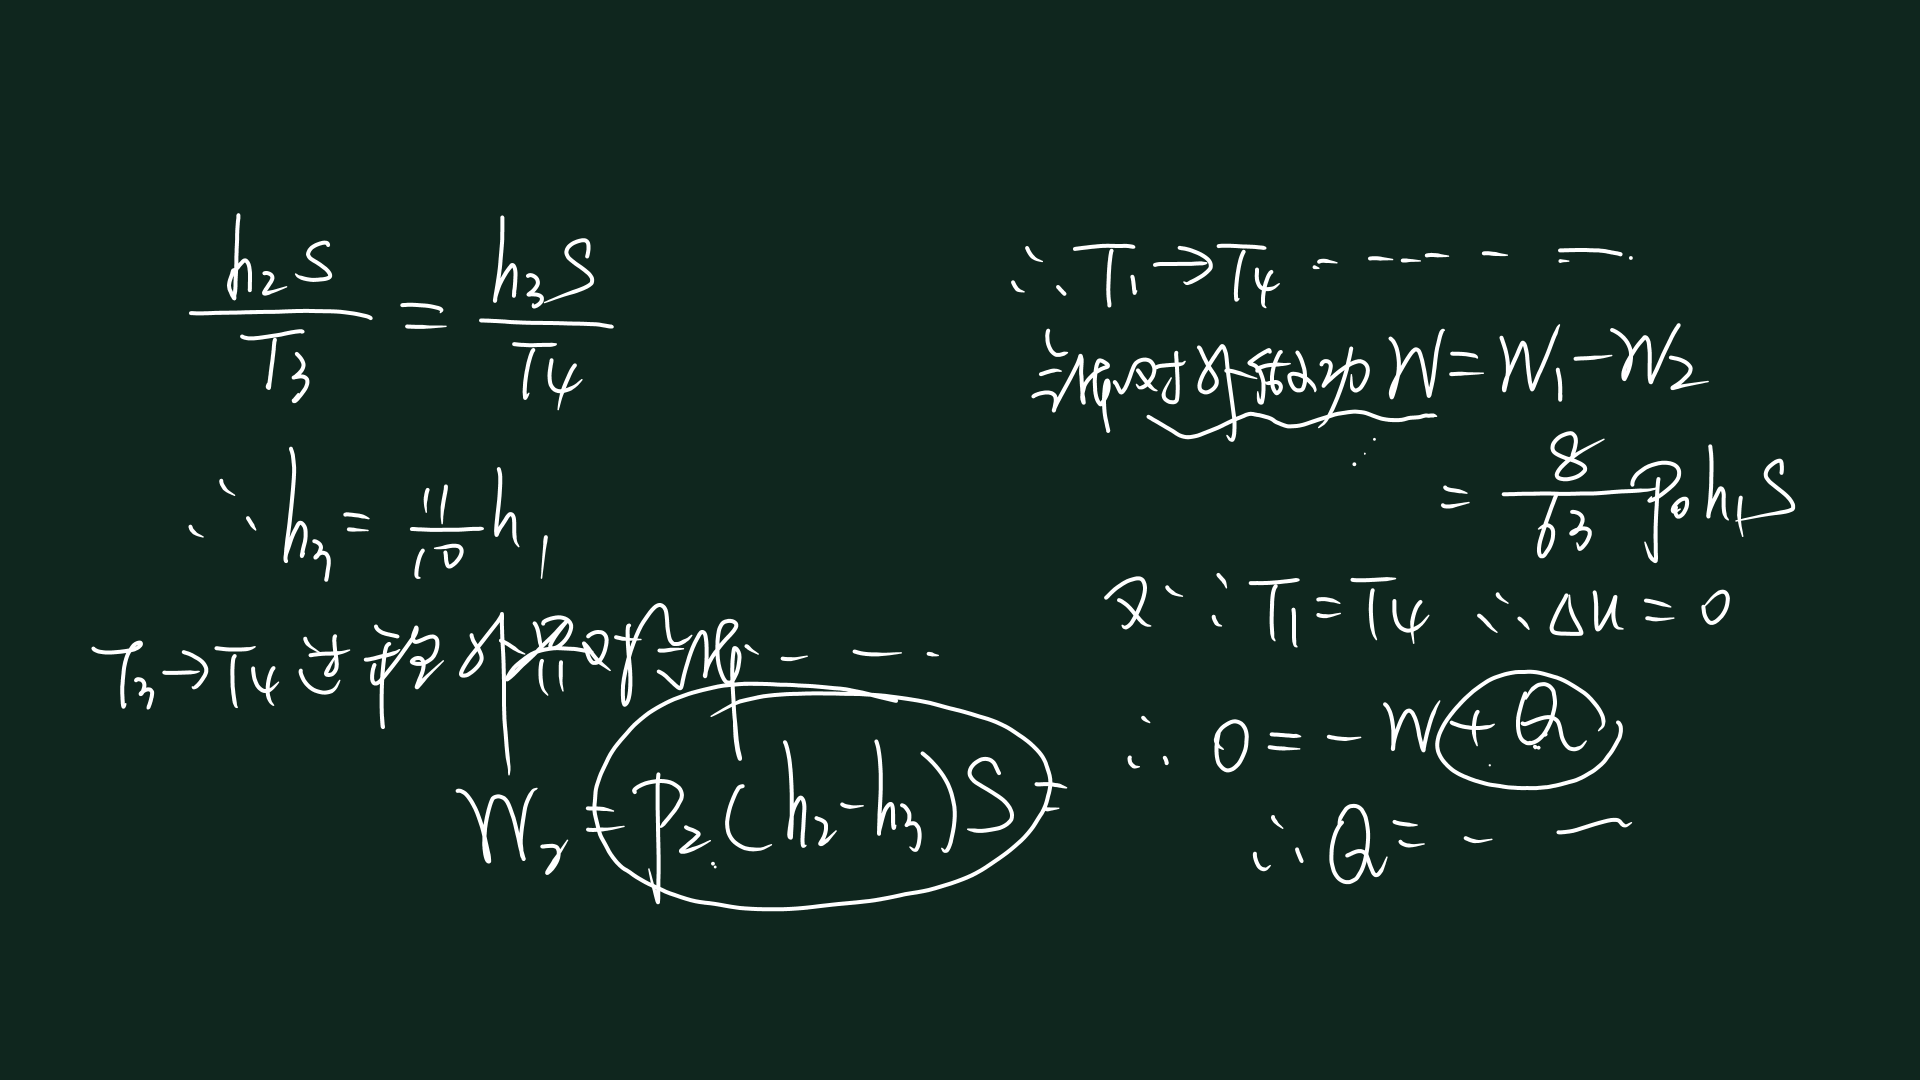 h₂S/T₃ = h₃S/T₄
∴ h₃ = 11/10 h₁
T₃→T₄ 过程 外界对气体 - — -
W₂ = p₂(h₂-h₃)S =
∴ T₁→T₄ - - - - - - —.
气体对外做功 W = W₁ - W₂
= 8/63 p₀h₁S
又∵ T₁ = T₄ ∴ Δu = 0
∴ 0 = - W + Q
∴ Q = - —